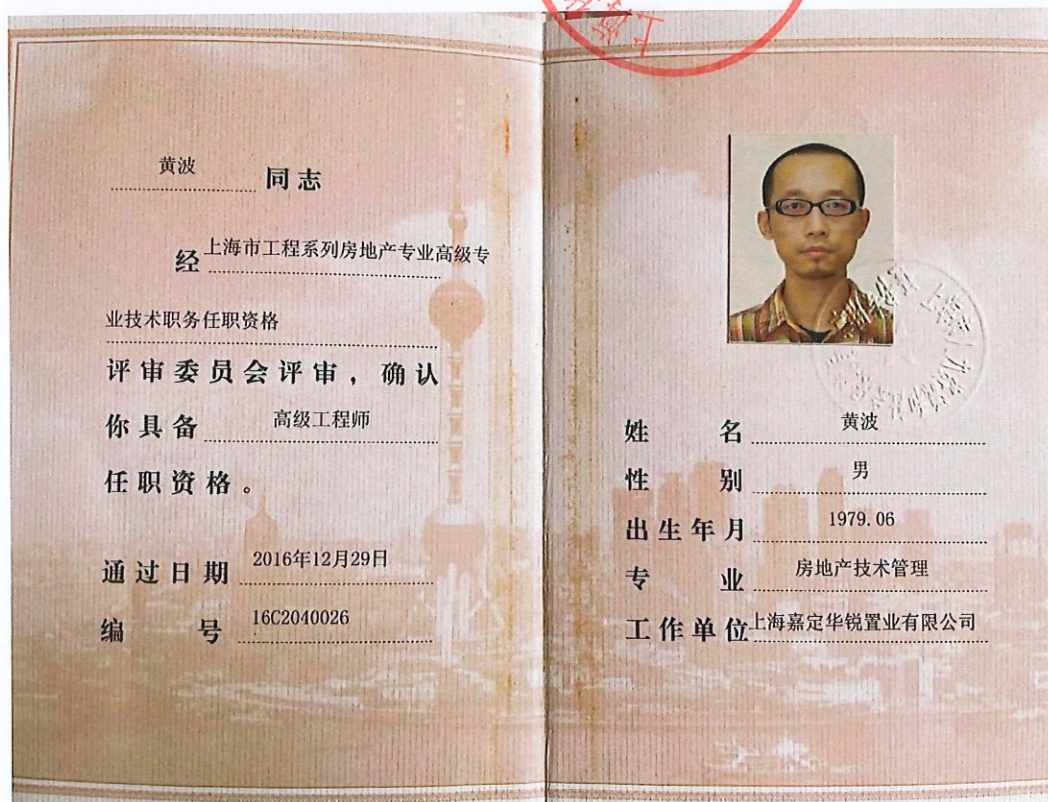 黄波 同志
经 上海市工程系列房地产专业高级专
业技术职务任职资格
评审委员会评审，确认
你具备 高级工程师
任职资格。
通过日期 2016年12月29日
编 号 16C2040026
姓 名 黄波
性 别 男
出生年月 1979.06
专 业 房地产技术管理
工作单位 上海嘉定华锐置业有限公司